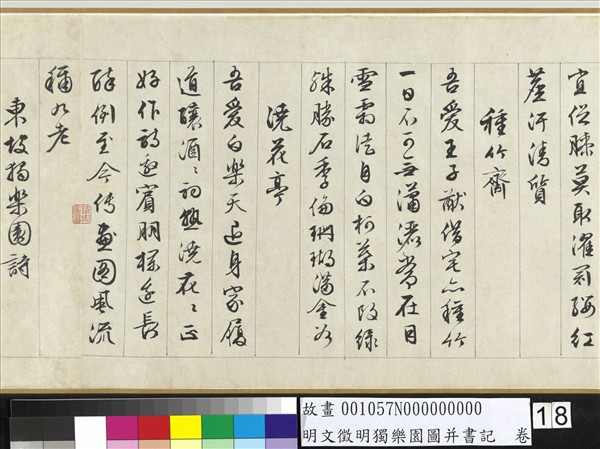 宜促膝莫取濯冠纓紅
塵汙清質
種竹齋
吾愛王子猷借宅亦種竹
一日不可無瀟灑常在目
雪霜徒自白柯葉不改綠
殊勝石季倫珊瑚滿金谷
澆花亭
吾愛白樂天退身家履
道釀酒〻初熟澆花〻正
好作詩邀賓朋欄邊長
醉倒至今傳畫圖風流
稱九老
東坡獨樂園詩
故畫 001057N000000000
明文徵明獨樂園圖并書記 卷
18